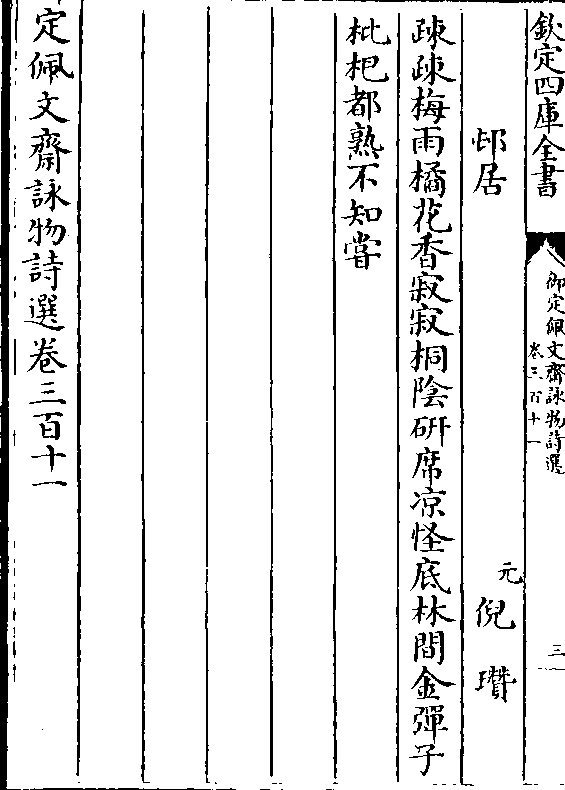 欽定四庫全書
御定佩文齋詠物詩選
卷三百十一
三
邨居
元
倪瓚
疎疎梅雨橘花香寂寂桐陰硏席凉怪底林間金彈子
枇杷都熟不知嘗
定佩文齋詠物詩選卷三百十一